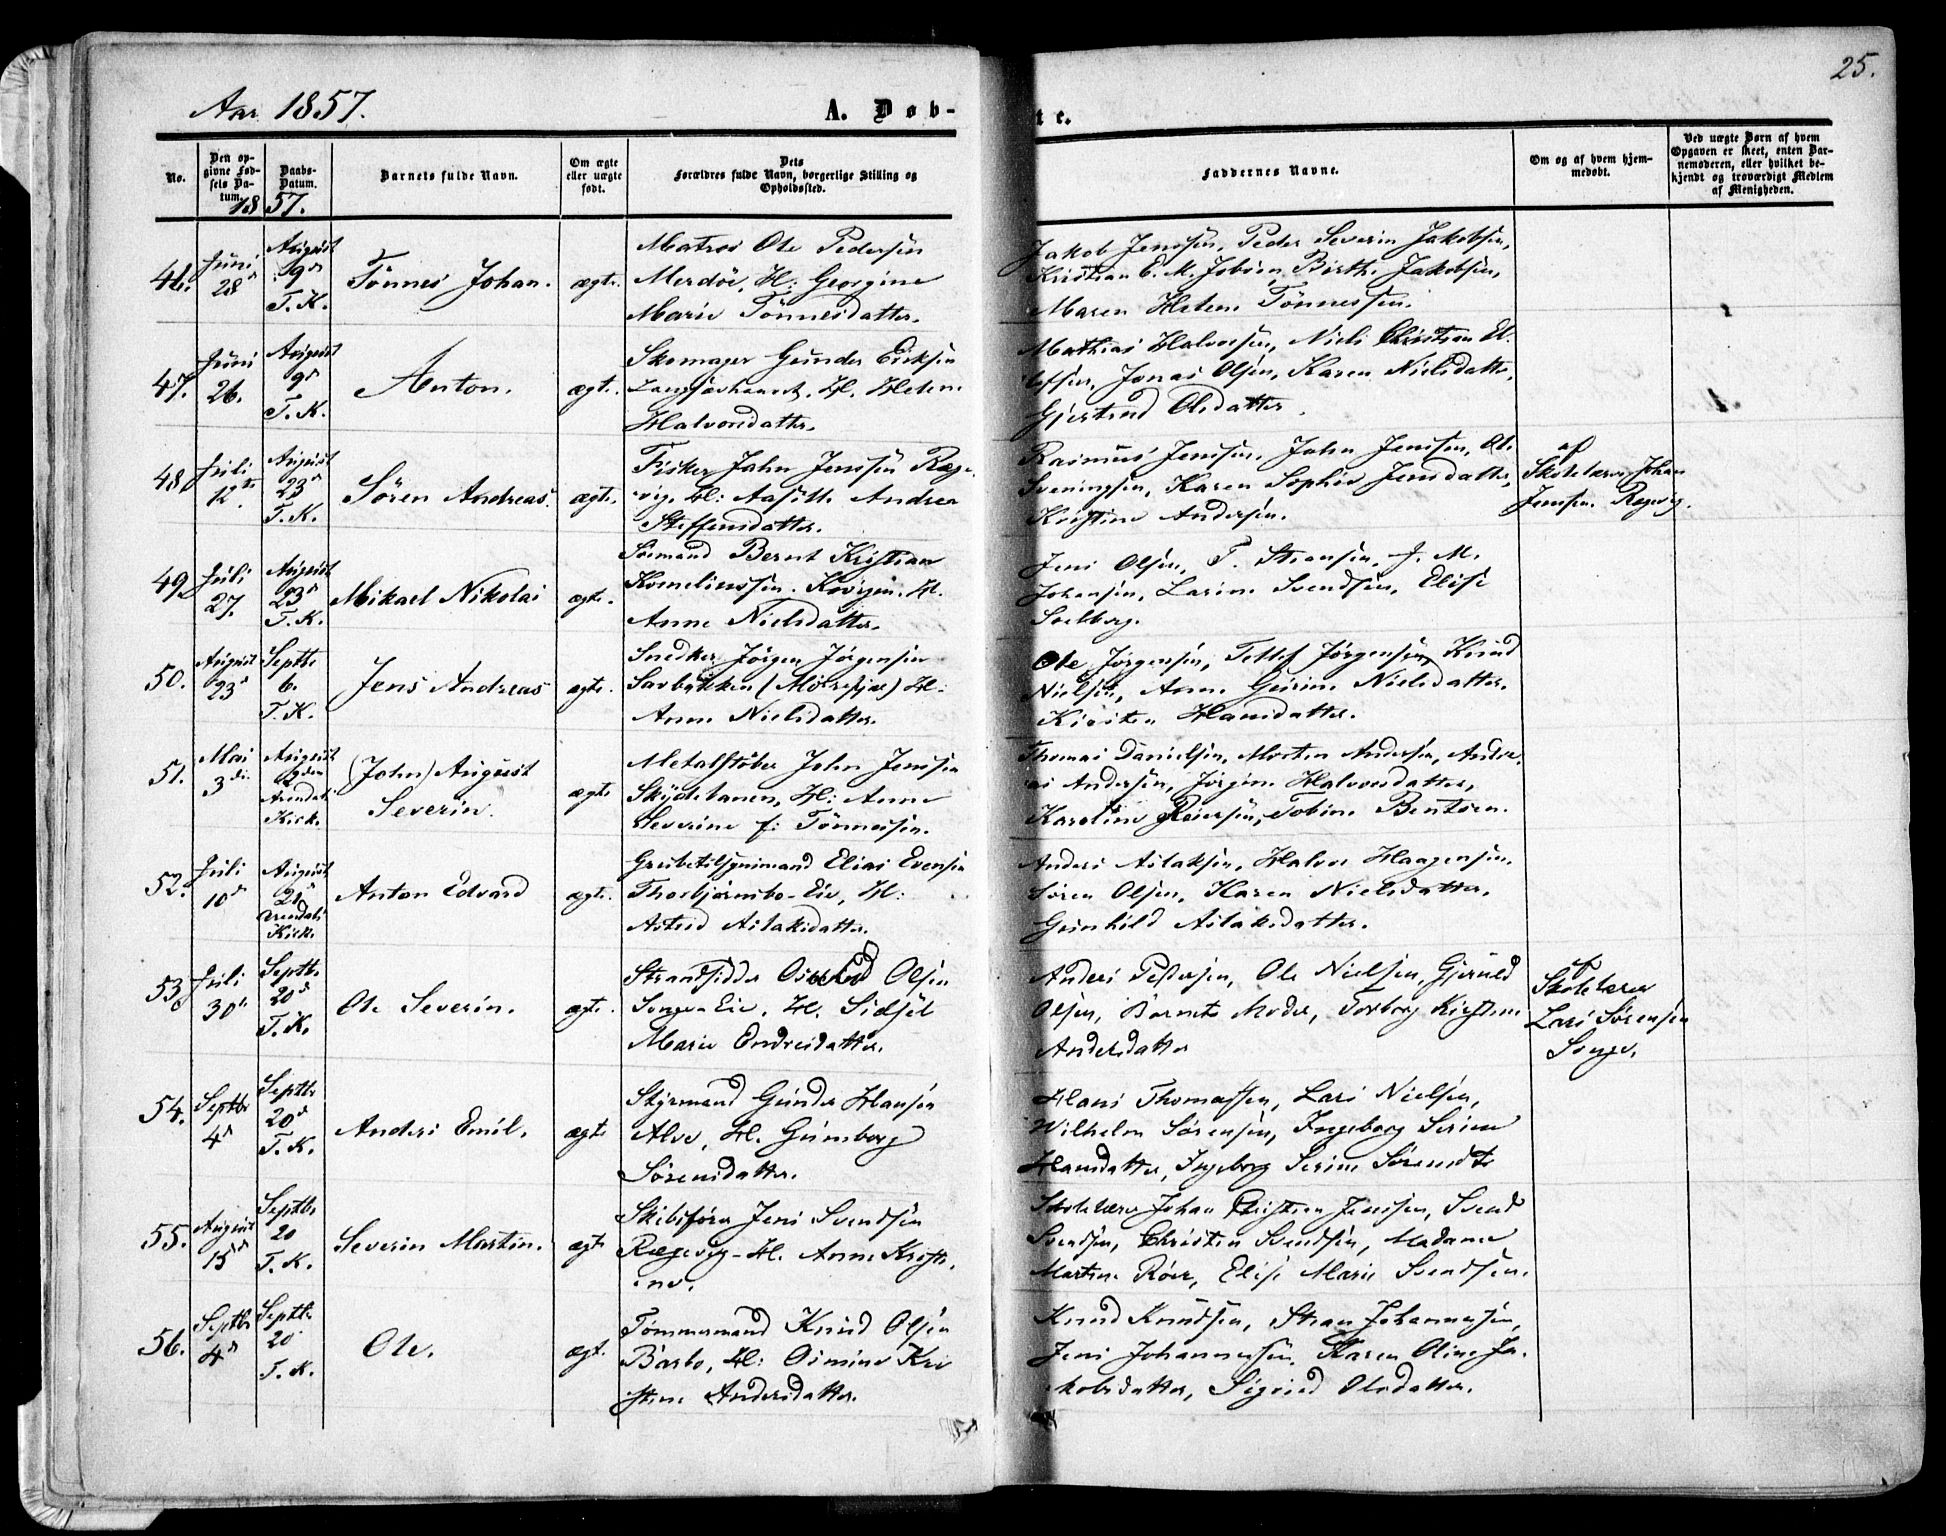 25.
Aar 1857.
A. Døb-
te.
No.
Den op-
givne Fød-
sels Da-
tum.
Daabs-
Datum.
Barnets fulde Navn.
Om ægte
eller uægte
født.
Dets
Forældres fulde Navn, borgerlige Stilling og
Opholdssted.
Faddernes Navne.
Om og af hvem hjem-
medøbt.
Ved uægte Børn af hvem
Opgaven er skeet, enten Bar-
nemoderen, eller hvilket be-
kjendt og troværdigt Medlem
af Menigheden.
1857.
46.
Juni
28
August
9
T. K.
Tönnes Johan.
ægte.
Matros Ole Pedersen
Merdöe, H: Georgine
Marie Tönnesdatter.
Jakob Jenssen, Peder Severin Jakobsen,
Kristian E. M. Birthe Jakobsen,
Maren Helene Tönnessen.
47.
Juni
26.
August
9
T. K.
Anton.
ægte.
Skomager Gunder Eriksen
H. Helene
Halvorsdatter.
Mathias Halvorsen, Niels Christian El-
lefsen, Jonas Olsen, Karen Nielsdatter,
Gjertrud Olsdatter.
48.
Juli
12.
August
23
T. K.
Sören Andreas.
ægte.
Fisker John Jenssen Ræge-
vig, H: Aasille Andrea
Steffensdatter.
Rasmus Jenssen, John Jenssen, Ole
Sveningsen, Karen Sophie Jensdatter,
Kristine Andersen.
af
Skolelærer Johan
Jenssen Rægevig.
49.
Juli
27.
August
23
T. K.
Mikael Nikolai
ægte.
Sömand Bernt Kristian
Kornelinssen. H.
Anne Nielsdatter.
Jens Olsen, T. J. M.
Johansen, Larine Svendsen, Elise
Solberg.
50.
August
23
Septbr
6.
T. K.
Jens Andreas
ægte.
Snedker Jörgen Jörgensen
H:
Anne Nielsdatter.
Ole Jörgensen, Tellef Jörgensen, Knud
Nielsen, Anne Gurine Nielsdatter,
Kirsten Hansdatter.
51.
Mai
3
August
Arendals
Kirk.
(John) August
Severin.
ægte
Metalstöber John Jenssen
Skytebanen, H: Anne
Severine f: Tönnesen.
Thomas Danielsen, Morten Andersen, Andre-
as Andersen, Jörgine Halvorsdatter,
Karoline Reiersen, Tobine Bentsen.
52.
Juli
10
August
21
Arendals
Kirk.
Anton Edvard
ægte.
Grubetilsynsmand Elias Evensen
Thorbjörnsbo-Eie, H:
Astrid Aslaksdatter.
Anders Aslaksen, Halvor Haagensen,
Sören Olsen, Karen Nielsdatter,
Gunhild Aslaksdatter.
53.
Juli
30
Septbr.
20
T. K.
Ole Severin.
ægte.
Strandsidder Osuld Olsen
Songe-Eie, H. Sidsel
Marie Endresdatter.
Anders Pedersen, Ole Nielsen, Gjeruld
Olsen, Barnets Moder, Torborg Kirstine
Andersdatter
af
Skolelærer
Lars Sörensen
Songe.
54.
Septbr
4
Septbr
20
T. K.
Anders Emil.
ægte
Styrmand Gunder Hansen
Alve, H. Gunborg
Sörensdatter.
Hans Thomassen, Lars Nielsen,
Wilhelm Sörensen, Ingeborg Serine
Hansdatter, Ingeborg Serine Sörensdtr
55.
August
15
Septbr.
20
T. K.
Severin Martin.
ægte
Skibsförer Jens Svendsen
Rægevig - H. Anne Kristi-
ne.
Skolelærer Johan Kristian Jenssen, Svend
Svendsen, Christen Svendsen, Madame
Martine Röer, Elise Marie Svendsen.
56.
Septbr
4
Septbr.
20
T. K.
Ole.
ægt.
Tömmermand Knud Olsen
Barbo, H: Osmine Kri
stine Andersdatter.
Knud Knudsen, Johannesen,
Jens Johannesen, Karen Oline Ja-
kobsdatter, Sigrid Olsdatter.